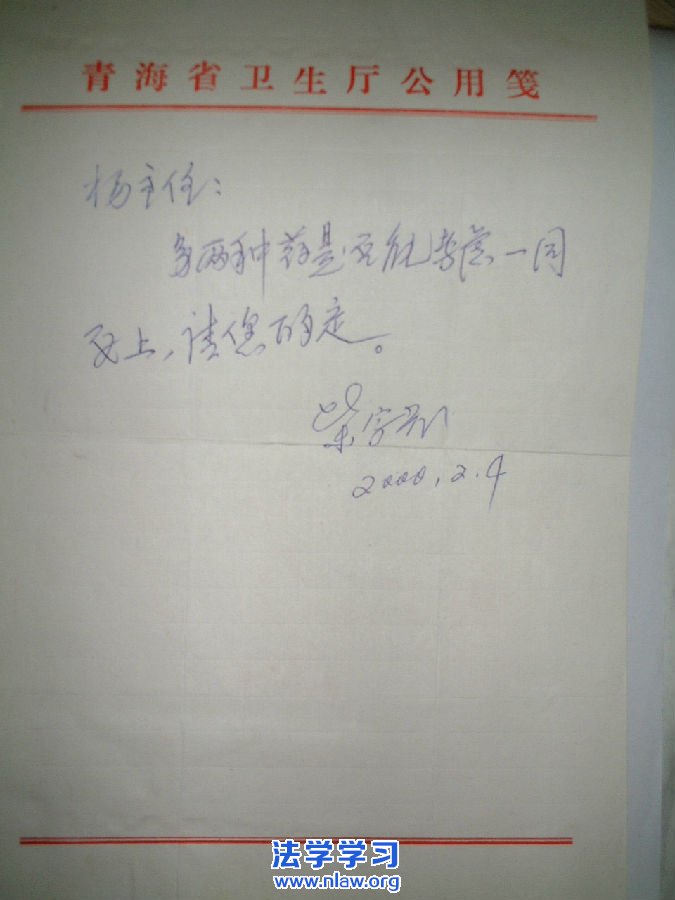 青海省卫生厅公用笺
杨主任：
两种药是否能考虑一同
上，请您酌定。
2000.2.4
法学学习
www.nlaw.org